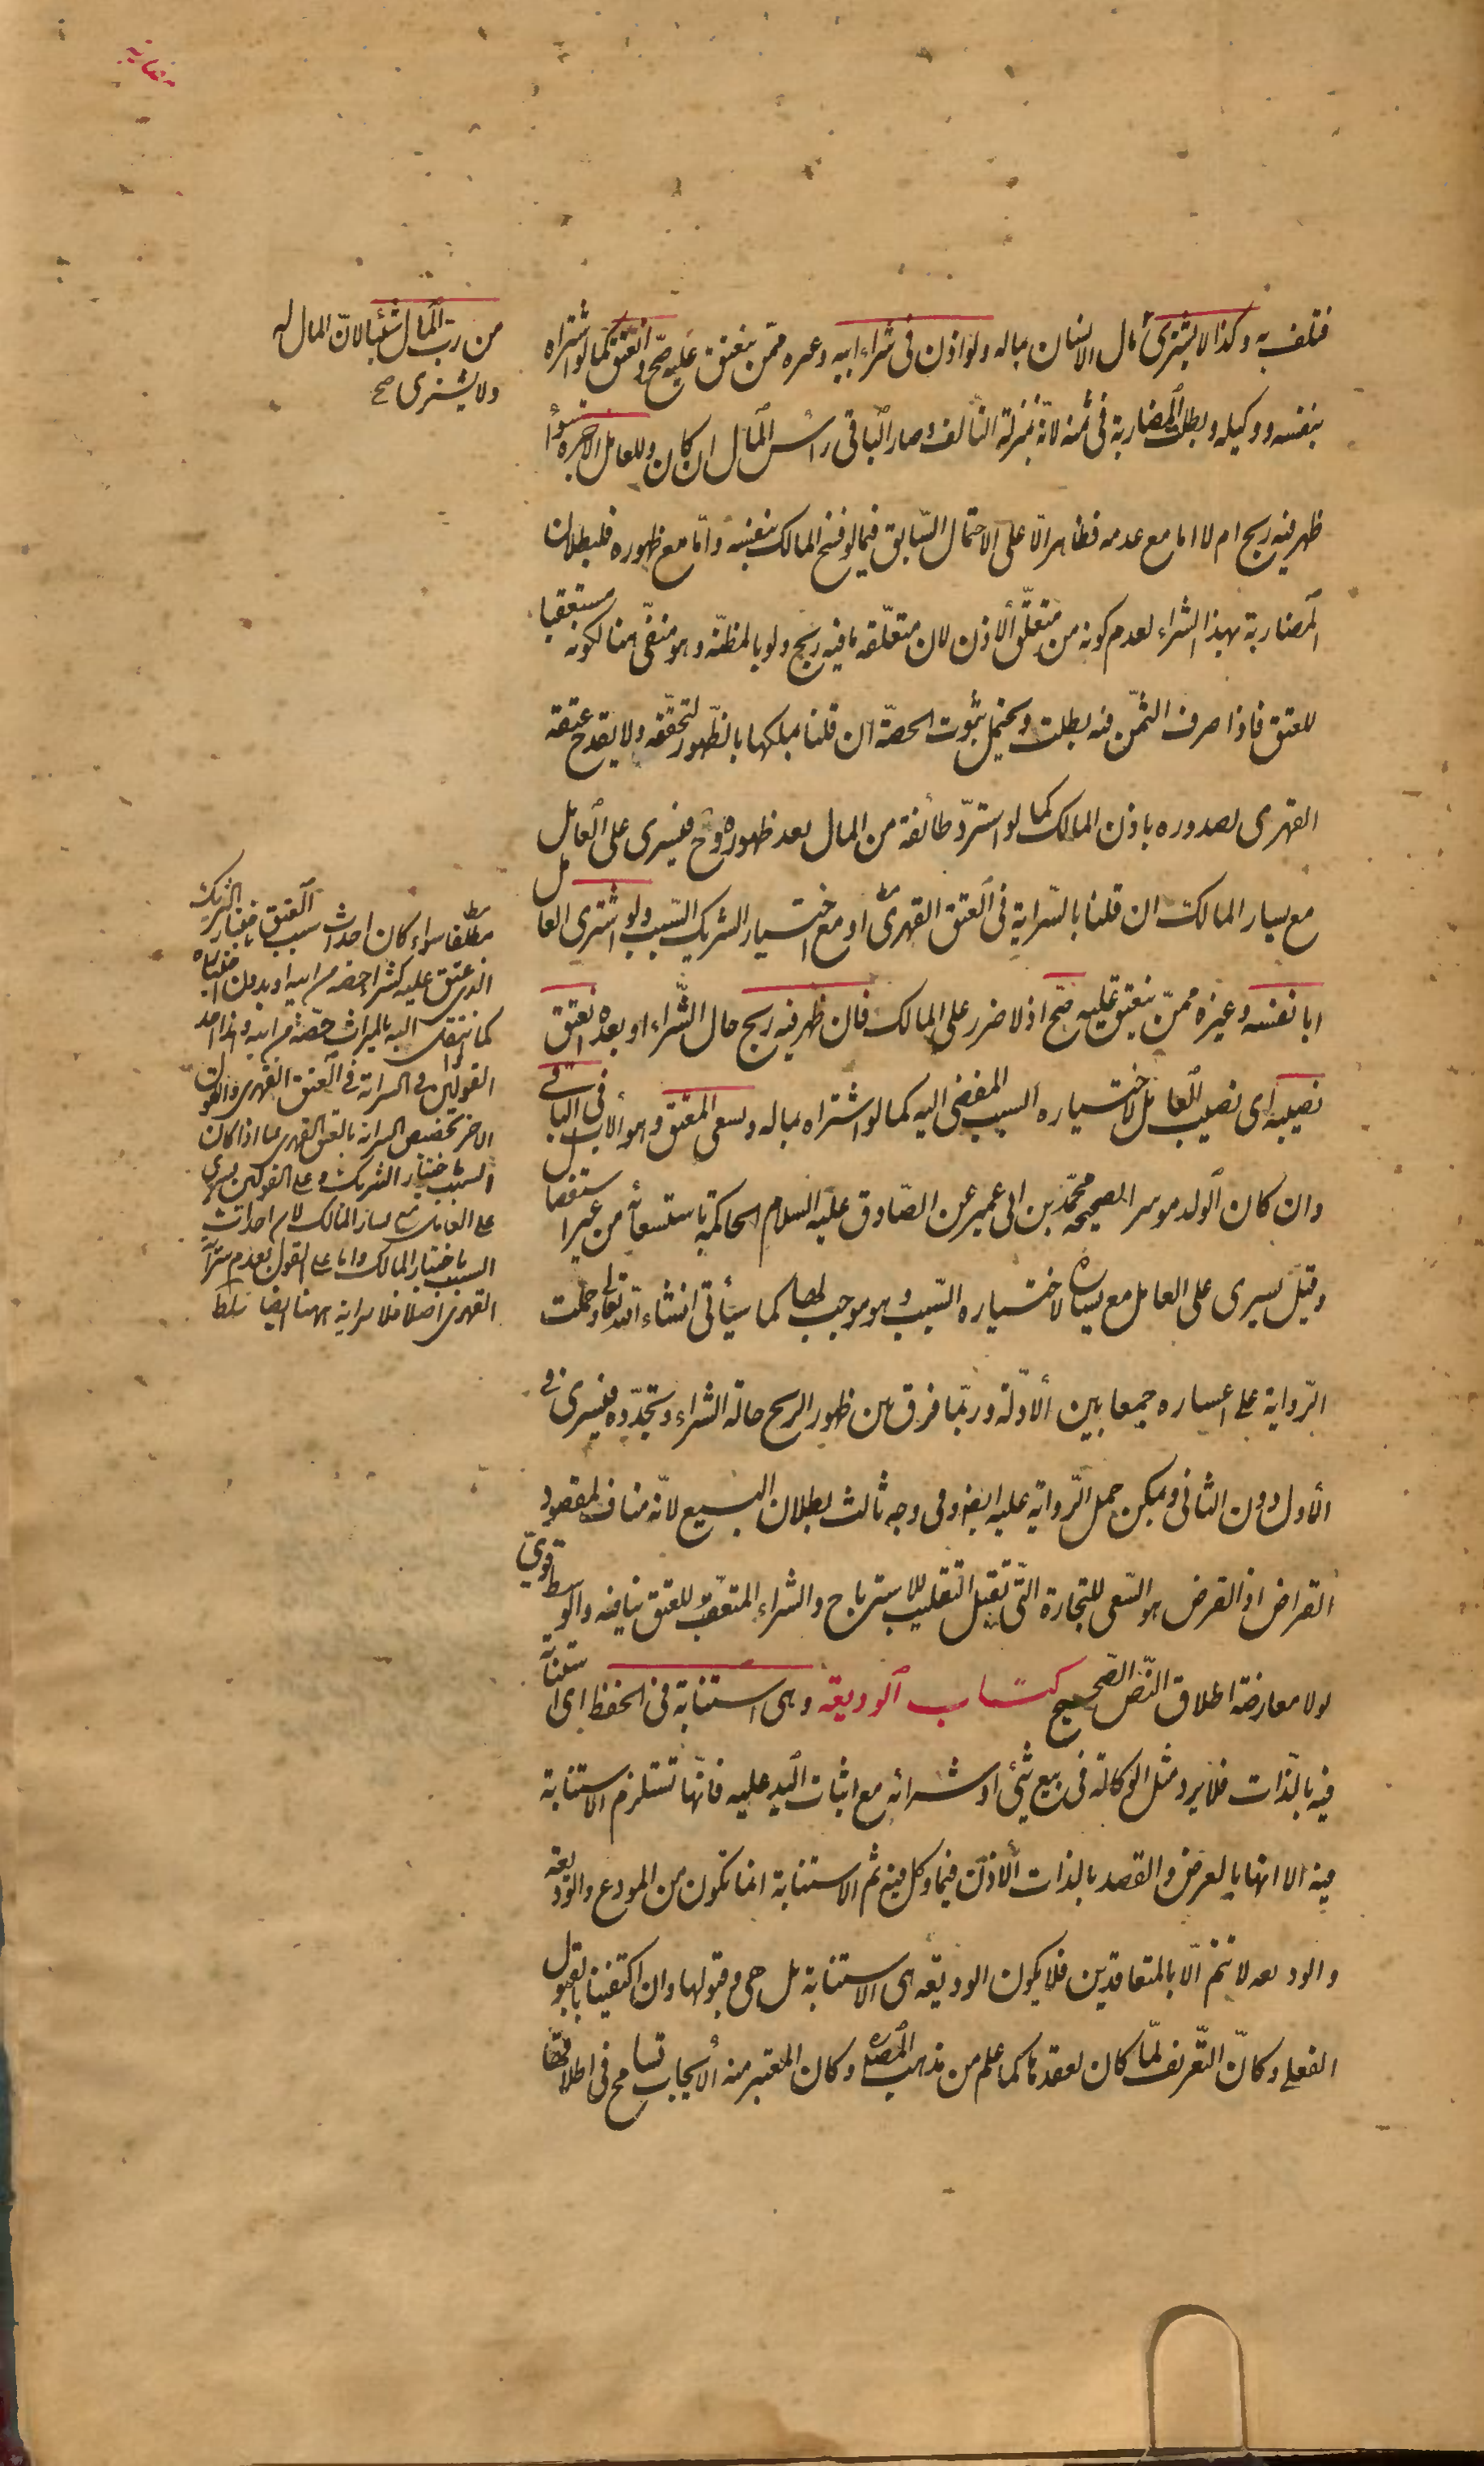 من رب المال شيئا لان المال له
ولا يشترى صح
فتلف به وكذا لا يشترى بمال الانسان بماله ولو اذن فى شراء ابيه وغيره ممن ينعتق عليه صح وانعتق كما لو اشتراه
بنفسه ووكيله وبطلت المضاربة فى ثمنه لانه بمنزلة التالف وصار الباقى راس المال ان كان وللعامل الاجرة سواء
ظهر فيه ربح ام لا اما مع عدمه فظاهر الا على الاحتمال السابق فيما لو فسخ المالك بنفسه واما مع ظهوره فلبطلان
المضاربة بهذا الشراء لعدم كونه من متعلق الاذن لان متعلقه ما فيه ربح ولو بالمظنة وهو منفى هنا لكونه مستعقبا
للعتق فاذا صرف الثمن فيه بطلت ويحتمل ثبوت الحصة ان قلنا بملكها بالظهور لتحققه ولا يقدح عتقه
القهرى لصدوره باذن المالك كما لو استرد طائفة من المال بعد ظهوره وح فيسرى على العامل
مع يسار المالك ان قلنا بالسراية فى العتق القهرى او مع اختيار الشريك السبب ولو اشترى العامل
ابا نفسه وغيره ممن ينعتق عليه صح اذ لا ضرر على المالك فان ظهر فيه ربح حال الشراء او بعده انعتق
نصيبه اى نصيب العامل لاختياره السبب المفضى اليه كما لو اشتراه بماله ويسعى المعتق وهو الاب فى الباقى
وان كان الولد موسرا لصحيحة محمد بن ابى عمير عن الصادق عليه السلام الحاكمة باستسعائه من غير استفصال
وقيل يسرى على العامل مع يساره لاختياره السبب وهو موجب لها كما سيأتى انشاء الله تعالى وحملت
الرواية على اعساره جمعا بين الادلة وربما فرق بين ظهور الربح حالة الشراء وتجدده فيسرى فى
الاول دون الثانى ويمكن حمل الرواية عليه ايضا وفى وجه ثالث بطلان البيع لانه مناف لمقصود
القراض اذ الغرض هو السعى للتجارة التى تقبل التقليب للاسترباح والشراء المتعقب للعتق ينافيه والوسط قوى
لولا معارضة اطلاق النص الصحيح كتاب الوديعة وهى استنابة فى الحفظ اى استنابة
فيه بالذات فلا يرد مثل الوكالة فى بيع شئ او شرائه مع اثبات اليد عليه فانها تستلزم الاستنابة
فيه الا انها بالعرض والقصد بالذات الاذن فيما وكل فيه ثم الاستنابة انما تكون من المودع والوديعة
والوديعه لا تتم الا بالمتعاقدين فلا يكون الوديعة هى الاستنابة بل هى وقبولها وان اكتفينا بالقبول
الفعلى وكأن التعريف لما كان لعقدها كما علم من مذهب المصره وكان المعتبر منه الايجاب تسامح فى اطلاقها
مطلقا سواء كان احداث سبب العتق باختيار الشريك
الذى عتق عليه كشراء حصة من ابيه او بدون اختياره
كما ينتقل اليه بالميراث حصة من ابيه وهذا احد
القولين فى السراية فى العتق القهرى والقول
الاخر تخصيص السراية بالعتق القهرى بما اذا كان
السبب باختيار الشريك وعلى القولين يسرى
على العامل مع يسار المالك لانه احداث
السبب باختيار المالك واما على القول بعدم سراية
القهرى اصلا فلا سراية ههنا ايضا